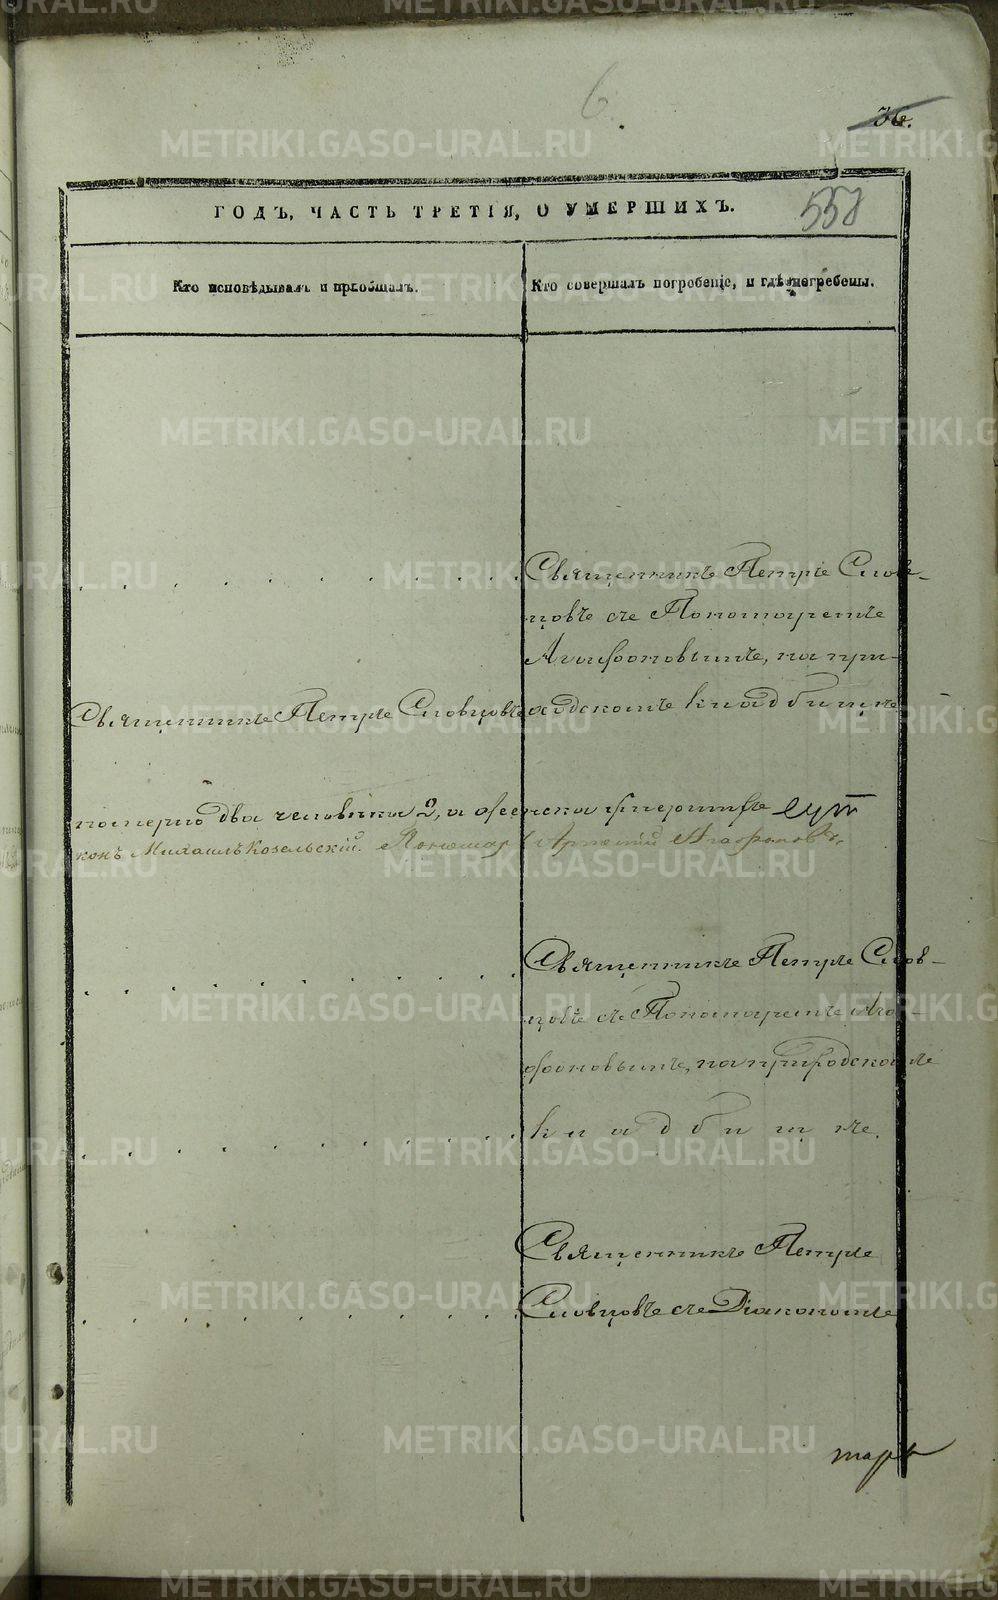 6.
36.
ГОДЪ, ЧАСТЬ ТРЕТІЯ, О УМЕРШИХЪ.
558
Кто исповѣдывалъ и пріобщалъ.
Кто совершалъ погребеніе, и гдѣ погребены.
Священникъ Петръ Слов-
цовъ съ Пономаремъ
Агафоновымъ, на при-
Священникъ Петръ Словцовъ
ходскомъ кладбищѣ
померло два человѣка 2, а женска
конъ Михаилъ Козельскій. Пономарь Агафоновъ.
Священникъ Петръ Слов-
цовъ съ Пономаремъ Ага-
фоновымъ, на приходскомъ
кладбищѣ.
Священникъ Петръ
Словцовъ съ Діакономъ
METRIKI.GASO-URAL.RU